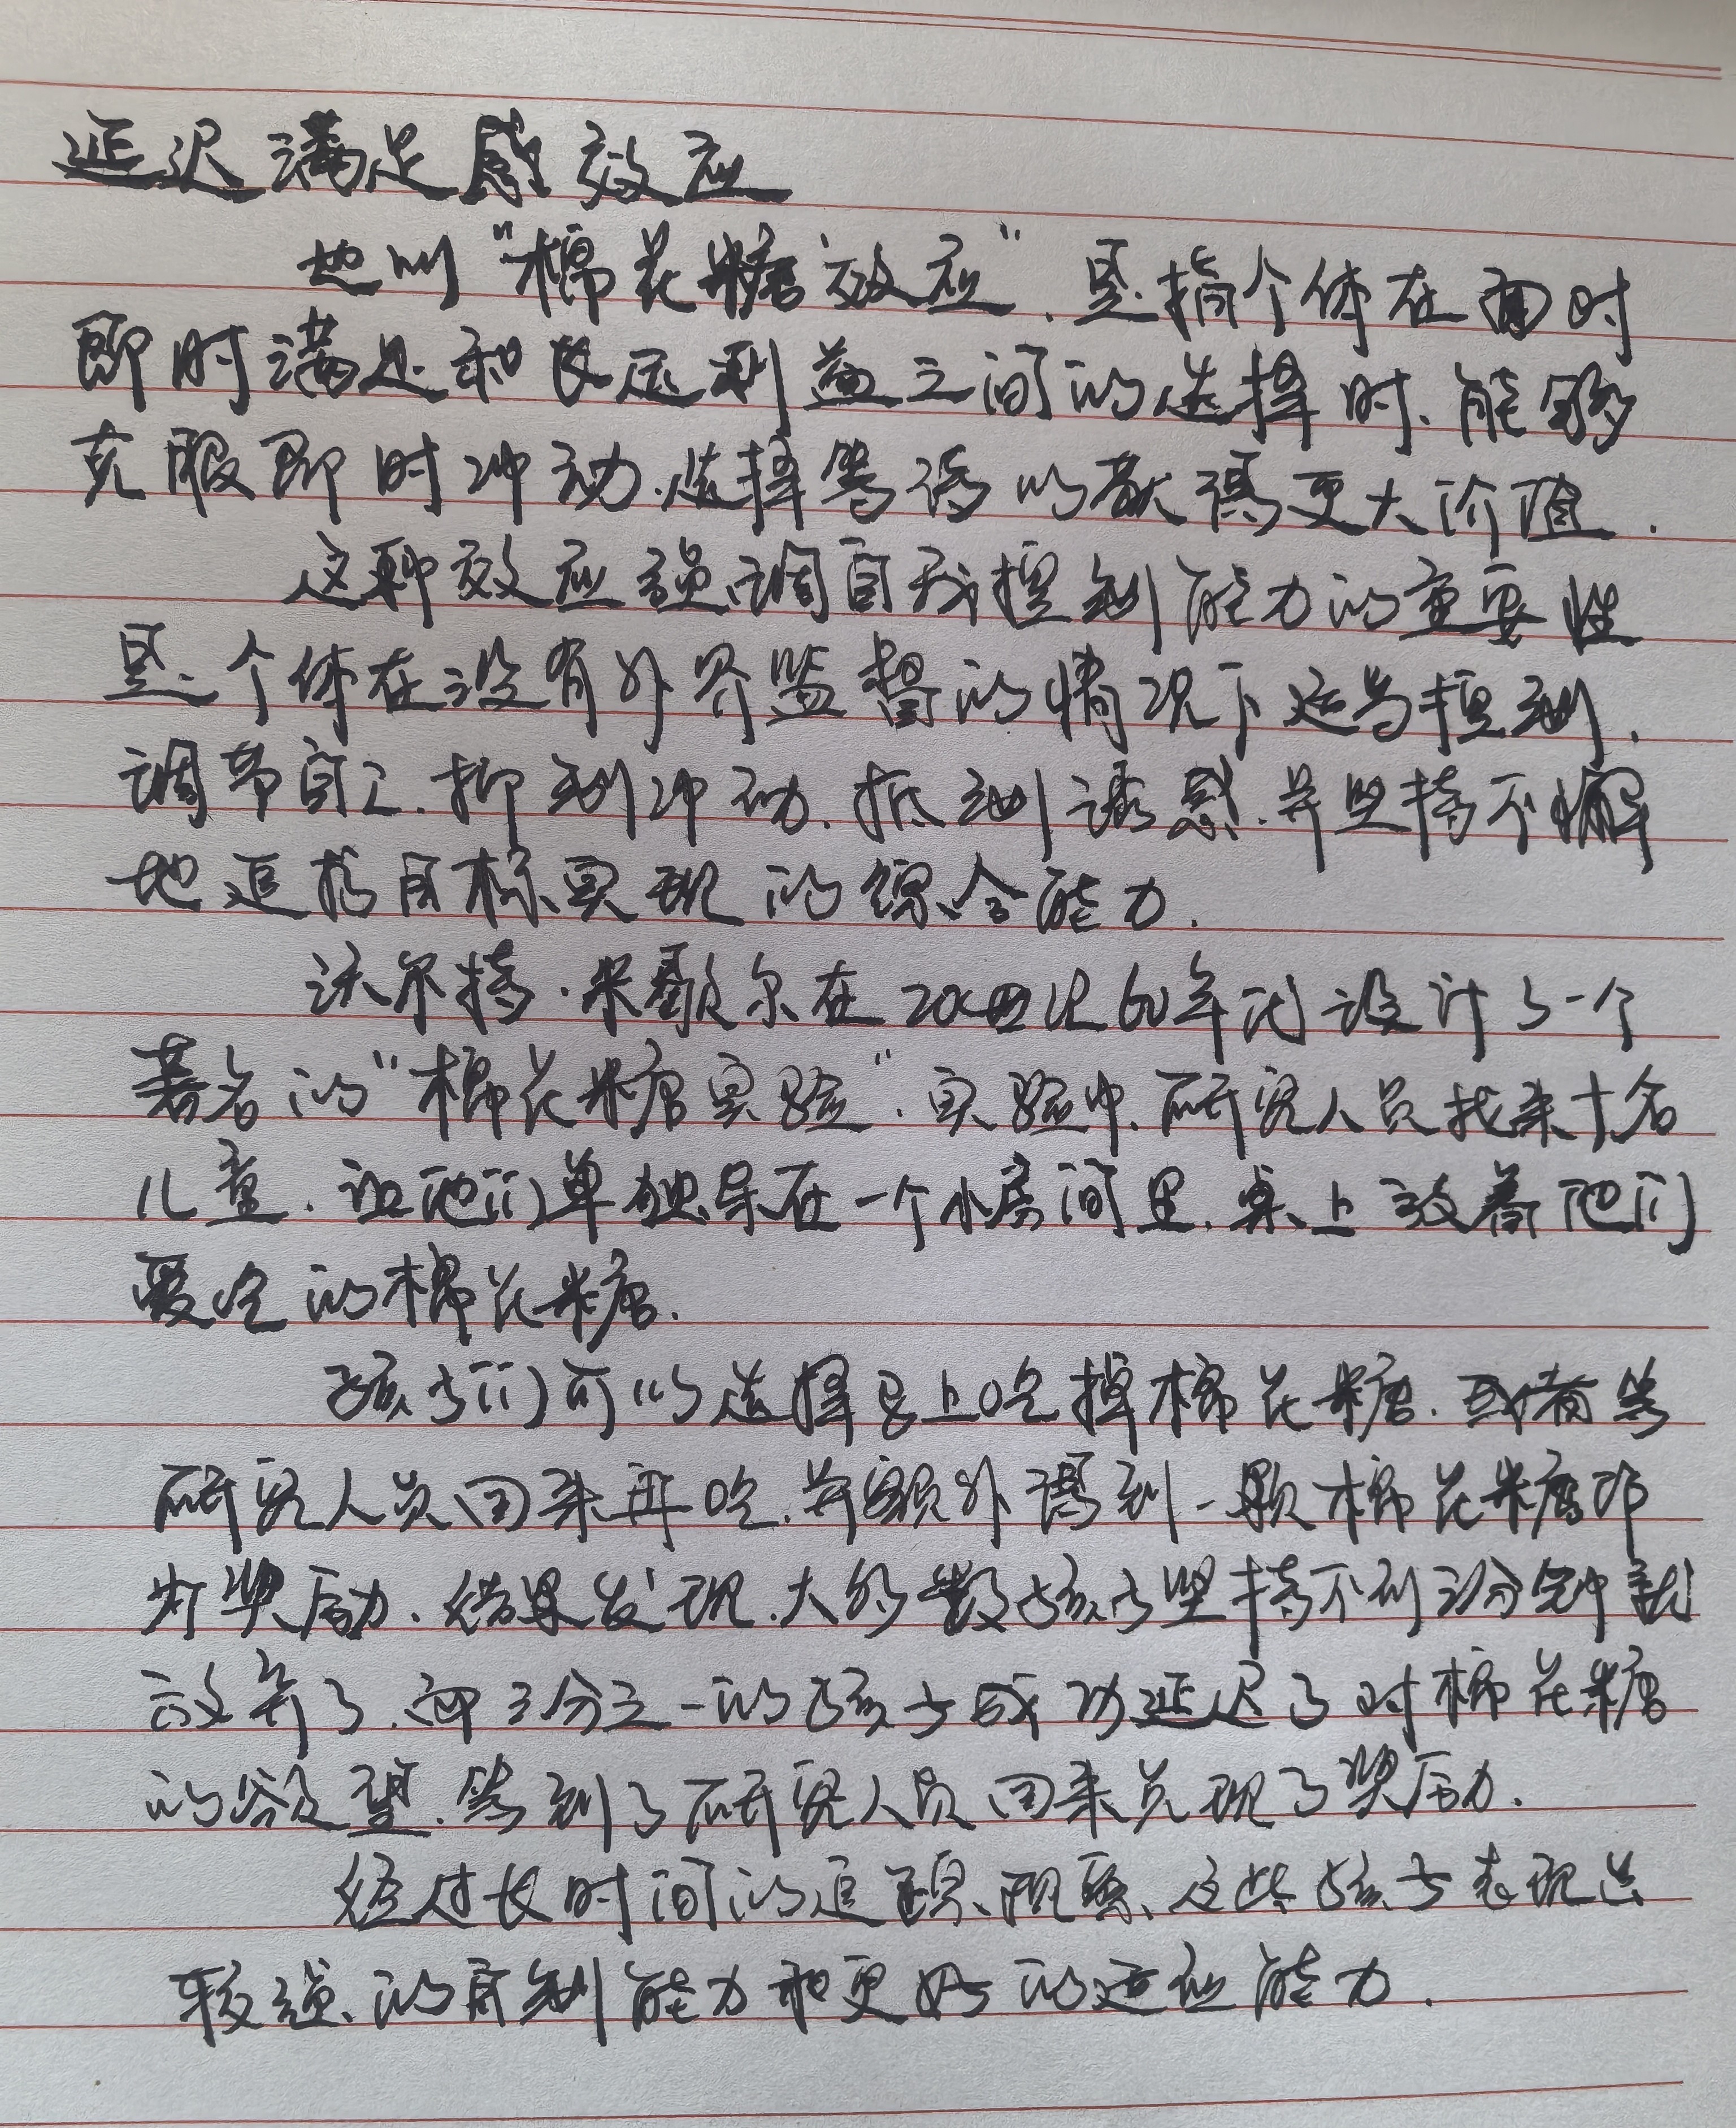 延迟满足感效应
也叫“棉花糖效应”.是指个体在面对
即时满足和长远利益之间的选择时.能够
克服即时冲动.选择等待以获得更大价值.
这种效应强调自我控制能力的重要性
是个体在没有外界监督的情况下适当控制.
调节自己.抑制冲动.抵制诱惑.并坚持不懈
地追求目标实现的综合能力.
沃尔特·米歇尔在20世纪60年代设计了一个
著名的“棉花糖实验”.实验中.研究人员找来十名
儿童.让他们单独呆在一个小房间里.桌上放着他们
爱吃的棉花糖.
孩子们可以选择马上吃掉棉花糖.或者等
研究人员回来再吃.并额外得到一颗棉花糖作
为奖励.结果发现.大多数孩子坚持不到3分钟就
放弃了.而三分之一的孩子成功延迟了对棉花糖
的欲望.等到了研究人员回来兑现了奖励.
经过长时间的追踪、观察、这些孩子表现出
较强的自制能力和更好的适应能力.